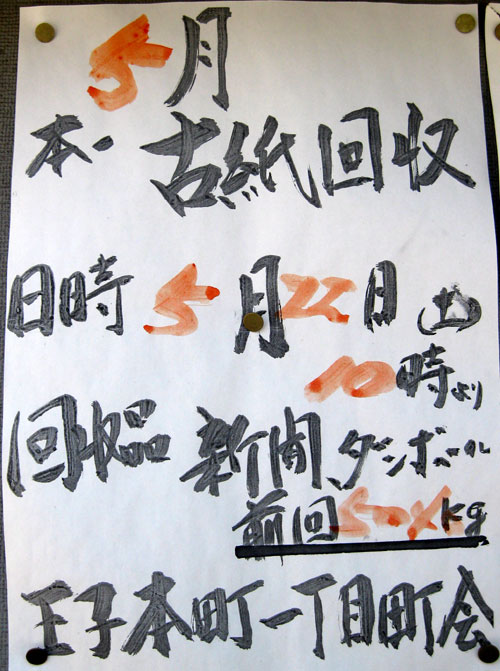 5月
本・古紙回収
日時 5月22日(土)
10時より
回収品 新聞、ダンボール
前回 504kg
王子本町一丁目町会